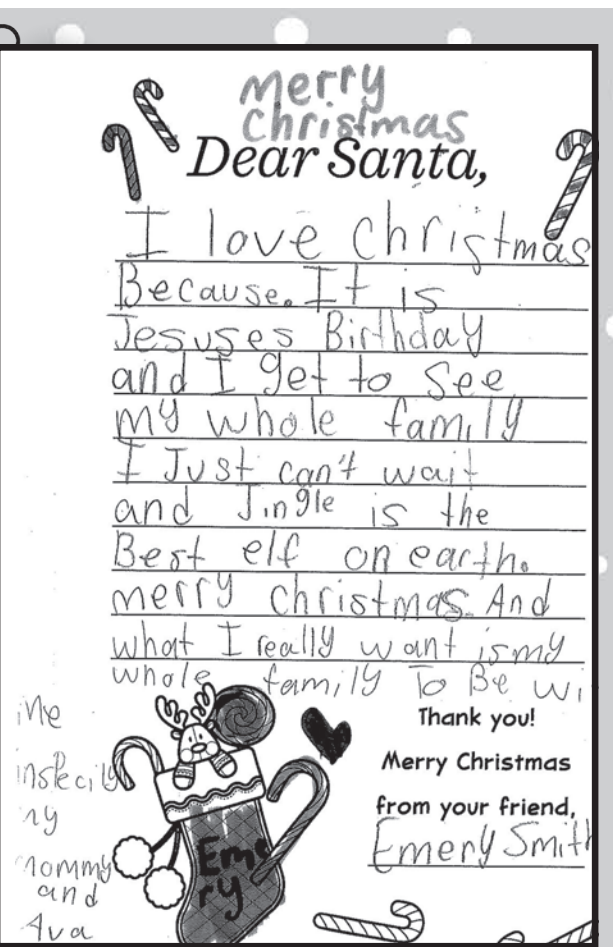 merry
christmas
Dear Santa,
I love christmas
Because. It is
Jesuses Birthday
and I get to see
my whole family
I Just can't wait
and Jingle is the
Best elf on earth.
merry christmas. And
what I really want is my
whole family To Be wi
me
inspecily
my
mommy
and
Ava
Thank you!
Merry Christmas
from your friend,
Emery Smith
Eme
ry